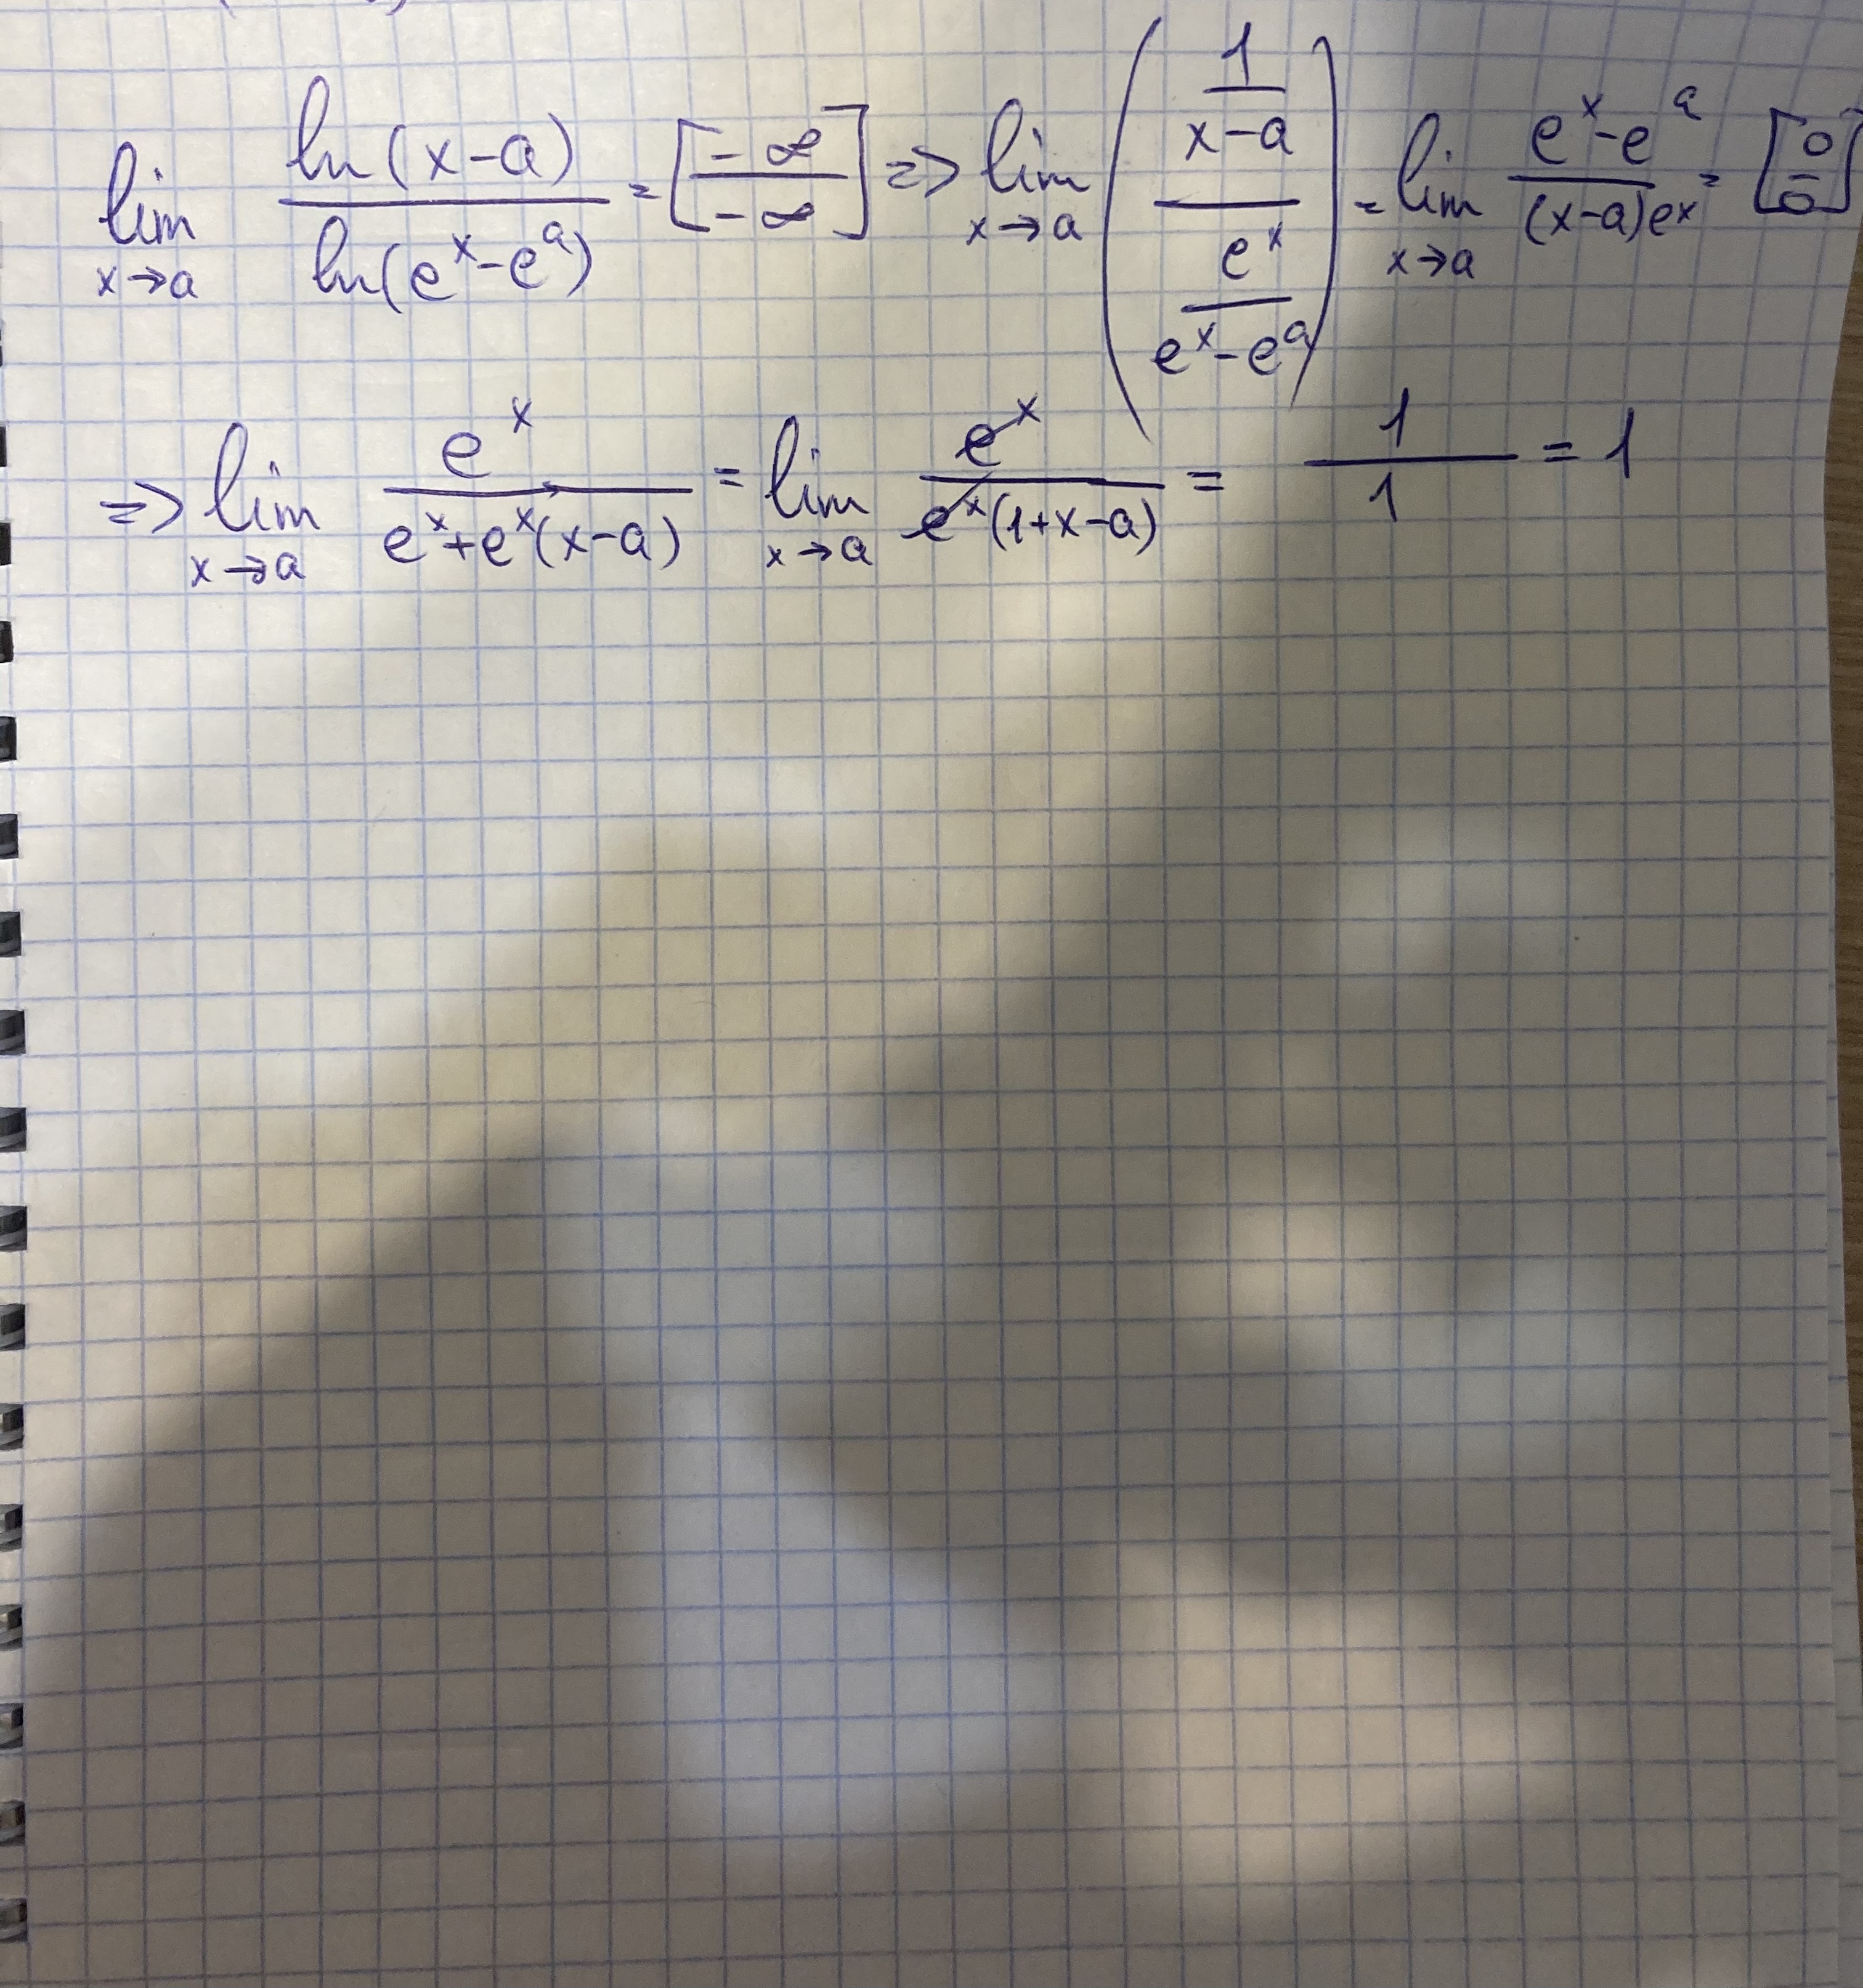 lim x→a ln(x-a)/ln(e^x-e^a) = [-∞/-∞] => lim x→a ((1/(x-a))/(e^x/(e^x-e^a))) = lim x→a (e^x-e^a)/((x-a)e^x) = [0/0]
=> lim x→a e^x/(e^x+e^x(x-a)) = lim x→a e^x/(e^x(1+x-a)) = 1/1 = 1